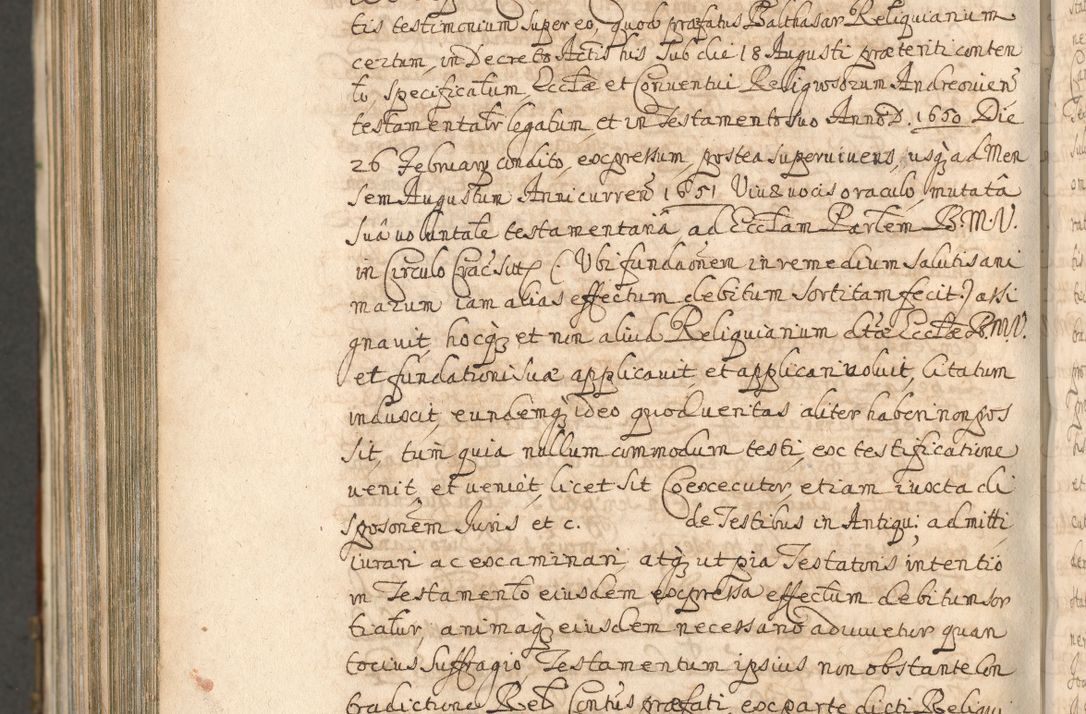 tis testimonium super eo, quod præfatus Balthasar Reliquianum
certum, in Decreto Actis his sub die 18 Augusti præteriti conten
to, specificatum, Ecctæ et Conventui Religiosorum Andreovien̄
testamentalr legatum, et in Testamento suo Ann̄o D. 1650 Die
26 February condito, expressum, postea supervivens, usq̨ ad Men
sem Augustum Anni curren̄ 1651 Vivæ vocis oraculo, mutatâ
suâ voluntate testamentariâ ad Ecctam Partem B.M.V.
in Circulo Crac̄ sit (Ubi fundaōnem in remedium salutis ani
marum iam alias effectum debitum sortitam fecit) assi
gnavit, hocq̨ et non aliud Reliquianum dtæ Ecctæ B.M.V.
et fundationi suæ applicavit, et applicari voluit, citatum
induxit, eundemq̨ ideo quod veritas aliter haberi non pos
sit, tum quia nullum commodum testi, ex testificatione
venit, et veniet, licet sit Coexecutor, etiam iuxta di
sposōnem Juris et c. de Testibus in Antiqui: admitti
iurari ac examinari, atq̨ ut pia Testatoris intentio
in Testamento eiusdem expressa effectum debitum sor
tiatur, animaq̨ eiusdem necessario adiuvetur quan
tocius suffragio, Testamentum ipsius non obstante Con
tradictione Rel Contus præfati, ex parte dicti Reliqui